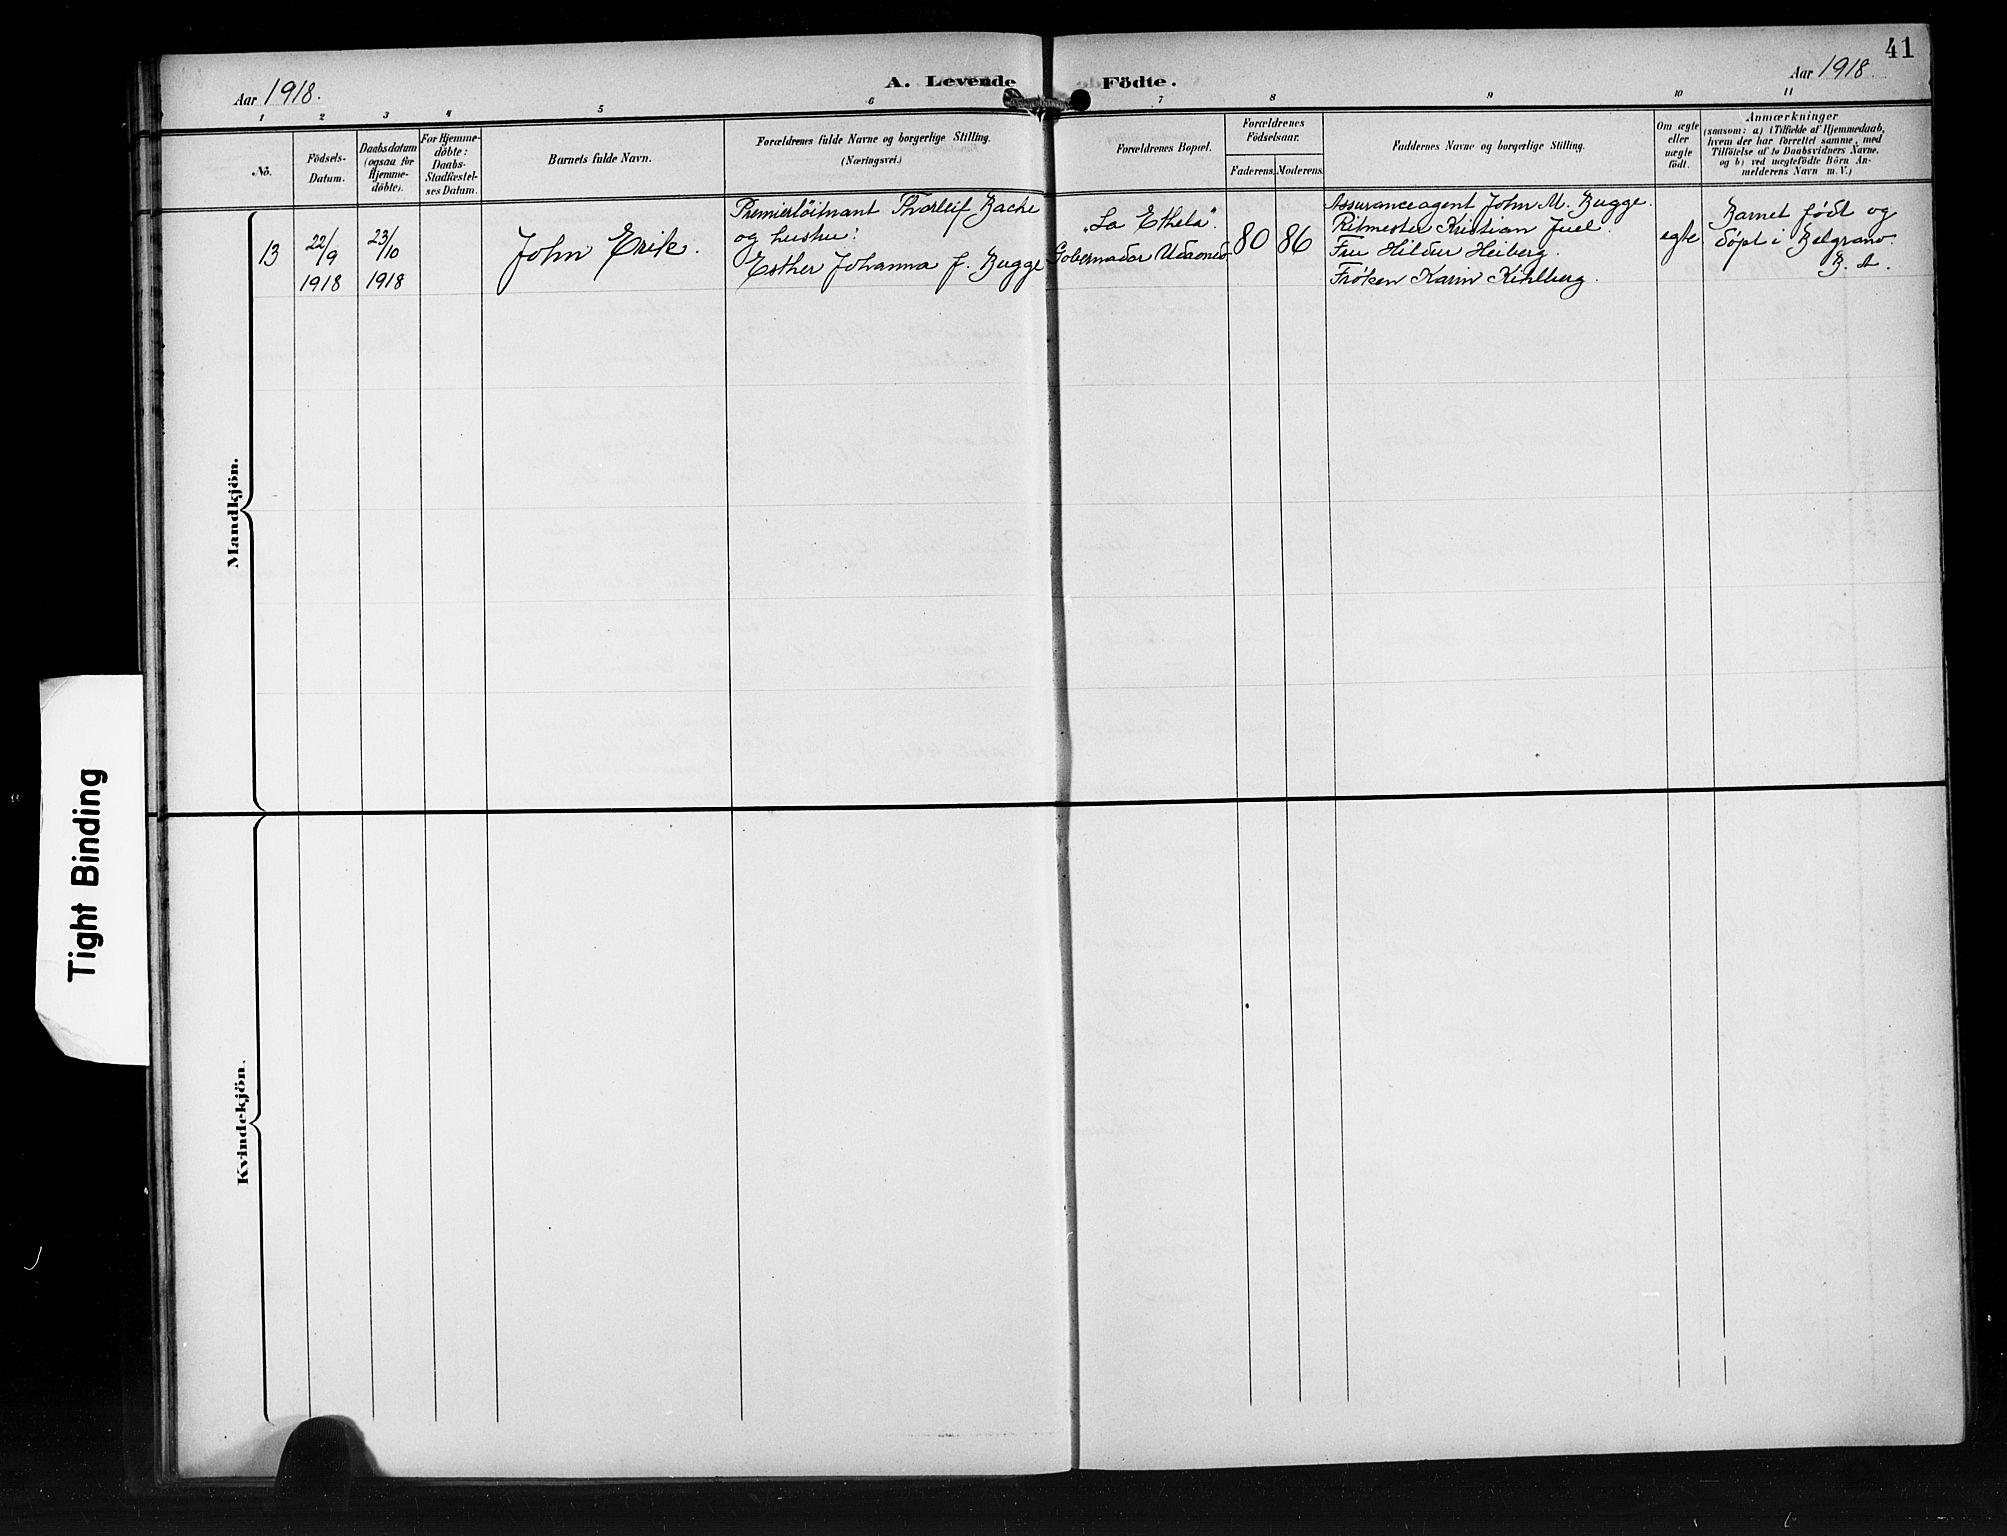 41
Aar 1918.
A. Levende Födte.
Aar 1918.
1 2 3 4 5 6 7 8 9 10 11
No.
Födsels-
Datum.
Daabsdatum
(ogsaa for
Hjemme-
döbte).
For Hjemme-
döbte:
Daabs-
Stadfæstel-
ses Datum.
Barnets fulde Navn.
Forældrenes fulde Navne og borgerlige Stilling.
(Næringsvei.)
Forældrenes Bopæl.
Forældrenes
Födselsaar.
Faderens. Moderens.
Faddernes Navne og borgerlige Stilling.
Om ægte
eller
uægte
födt.
Anmærkninger
(saasom: a) i Tilfælde af Hjemmedaab,
hvem der har forrettet samme, med
Tilföielse af to Daabsvidners Navne,
og b) ved uægtefödte Börn An-
melderens Navn m. V.)
Mandkjön.
13
22/9
1918
23/10
1918
John Erik.
Premierløitnant Thorleif Bache
og hustru:
Esther Johanna f. Bugge
"La Ethela".
Gobernador Udaondo
80
86
Assuranceagent John M. Bugge.
Ritmester Kristian Juel.
Fru Hildur Heiberg.
Frøken Karin Kihlberg.
egte
Barnet født og
døpt i Belgrano.
B. A.
Kvindekjön.
Tight Binding